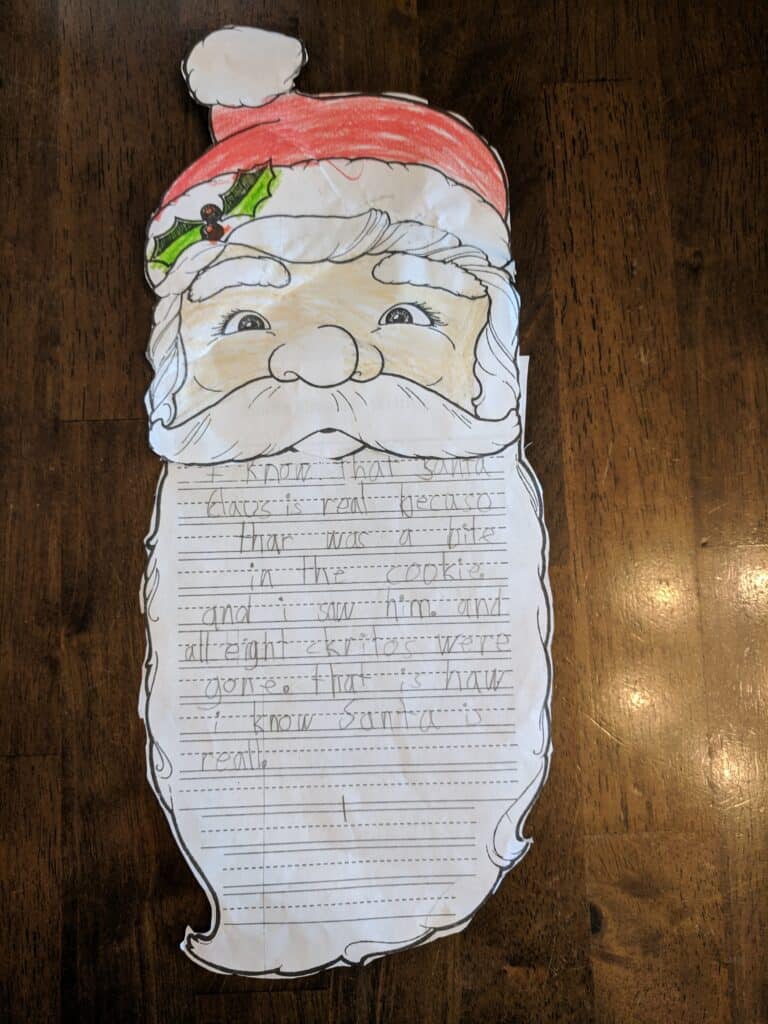 I know that Santa
Claus is real becuase
thar was a bite
in the cookie.
and i saw him. and
all eight ckritos were
gone. that is haw
i know Santa is
reall.